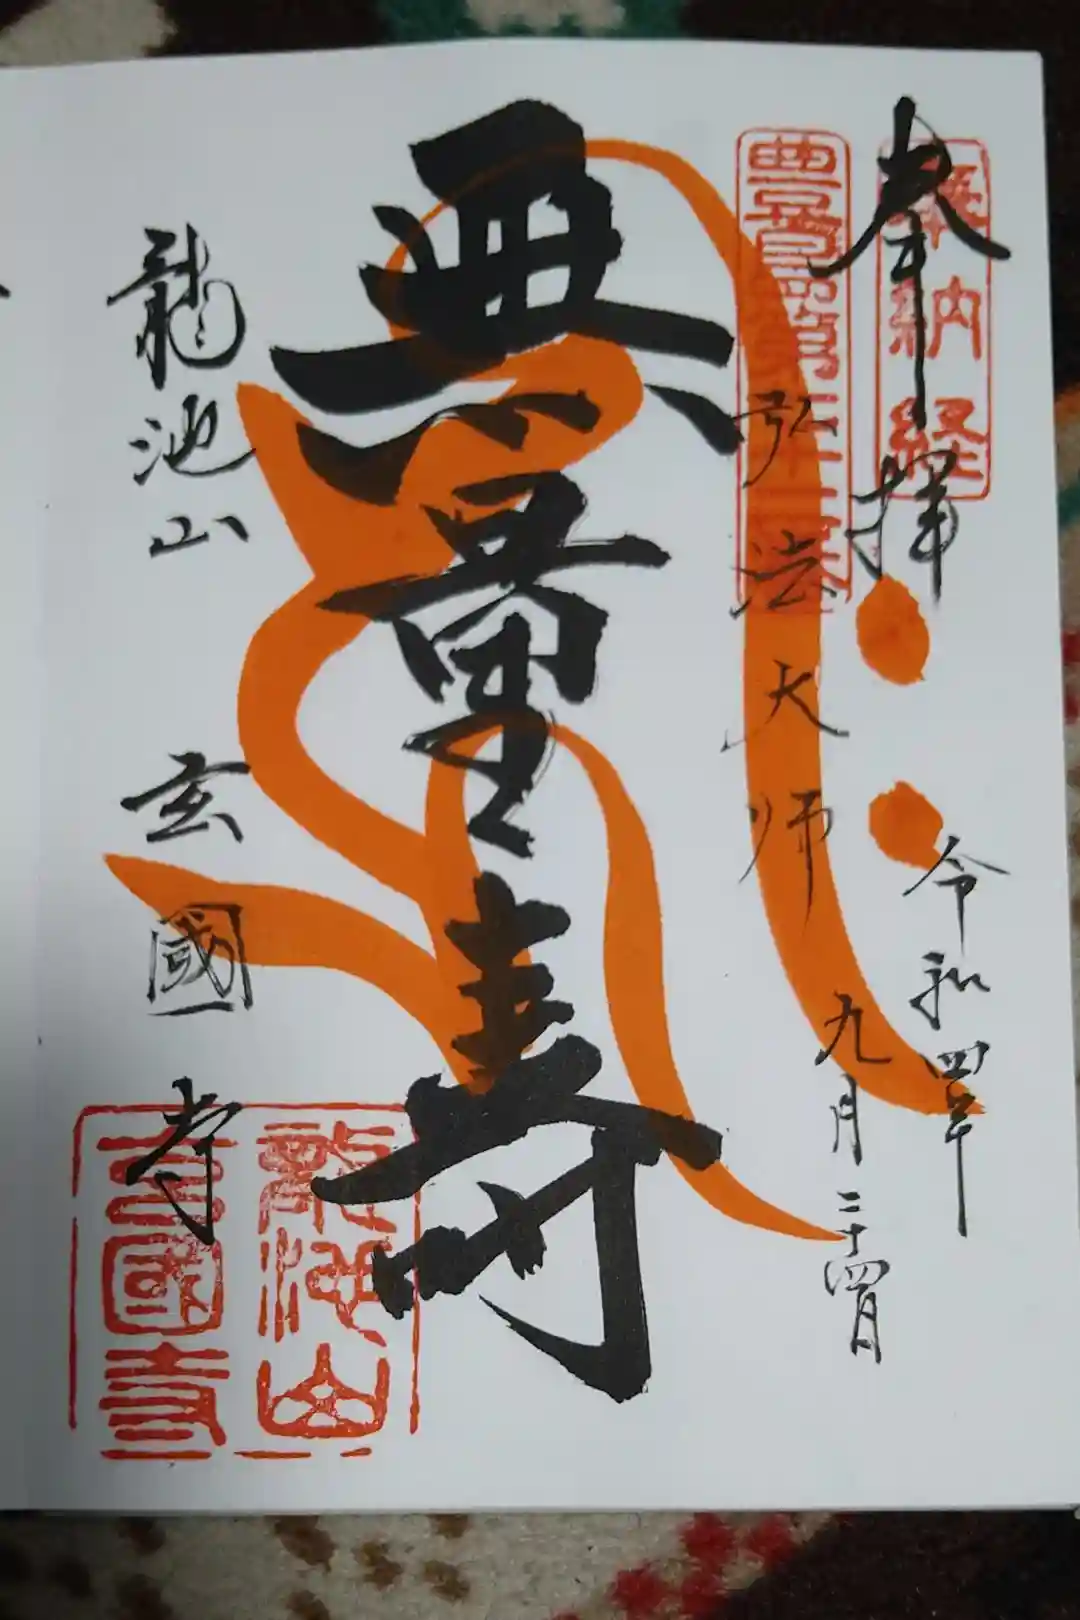 奉拝
奉納経
令和四年
九月二十四日
弘法大师
無量寿
龍池山
玄國寺
龍池山
玄國寺